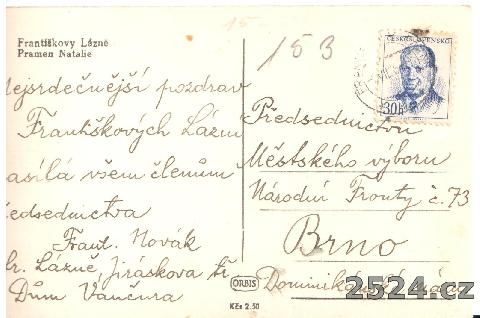 Františkovy Lázně
Pramen Natalie
15-
153
ČESKOSLOVENSKO
30h
ejsrdečnější pozdrav
Františkových Lázní
asílá všem členům
ředsednictva
Frant. Novák
r. Lázně, Jiráskova tř.
Dům Vančura
ORBIS
KčS 2.50
Předsednictvu
Městského výboru
Národní Fronty č. 73
Brno
Dominikánské nám.
2524.cz